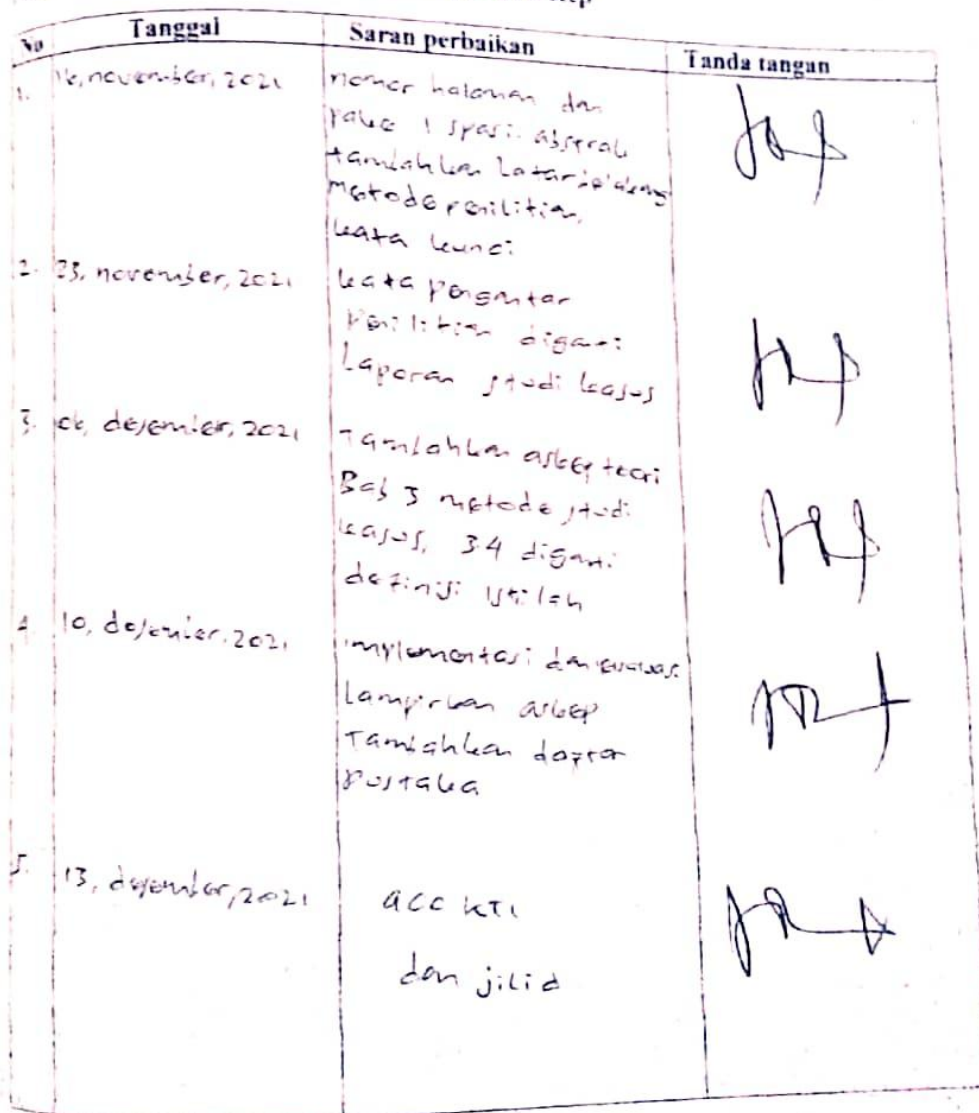 No Tanggal Saran perbaikan Tanda tangan
1. 16, november, 2021 nomor halaman dan
pake 1 spasi. abstrak
tambahkan Latar belakang
Metode penilitian,
kata kunci
2. 23, november, 2021 kata pengantar
Penilitian diganti
Laporan studi kasus
3. 06, desember, 2021 Tambahkan askep teori
Bab 3 metode studi
kasus, 3.4 diganti
definisi istilah
4. 10, desember, 2021 implementasi dan evaluasi
Lampirkan askep
Tambahkan daftar
Pustaka
5. 13, desember, 2021 acc KTI
dan jilid